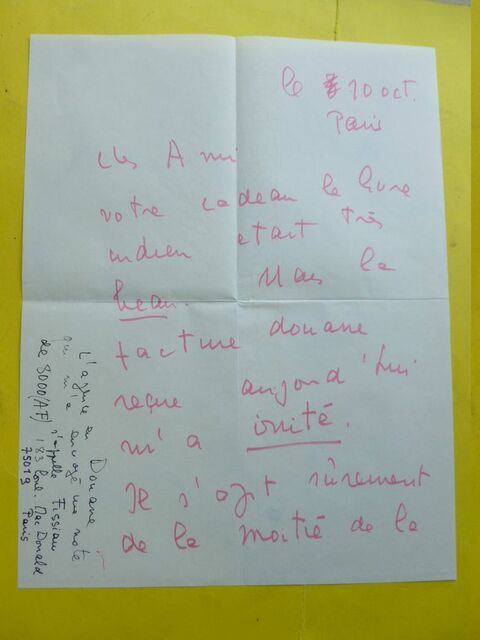 le 10 oct.
Paris
chs Ami
votre cadeau le livre
indien etait très
beau. Mais la
facture douane
reçue aujourd'hui
m'a irrité.
Il s'agit sûrement
de la moitié de la
L'agence en Douane
qui m'a envoyé une note
de 8000 (AF) s'appelle Tissiau
183 boul. Mac Donald
75019 Paris